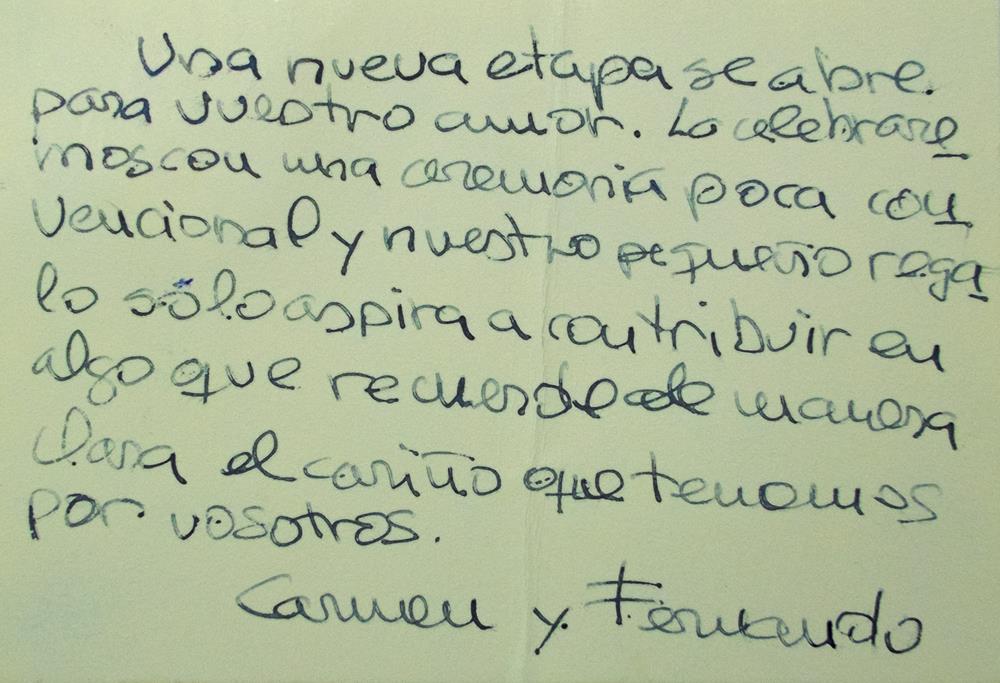 Una nueva etapa se abre.
para vuestro amor. Lo celebrare
mos con una ceremonia poca con
vencional y nuestro pequeño rega
lo sólo aspira a contribuir en
algo que recuerde de manera
clara el cariño que tenemos
por vosotros.
Carmen y Fernando